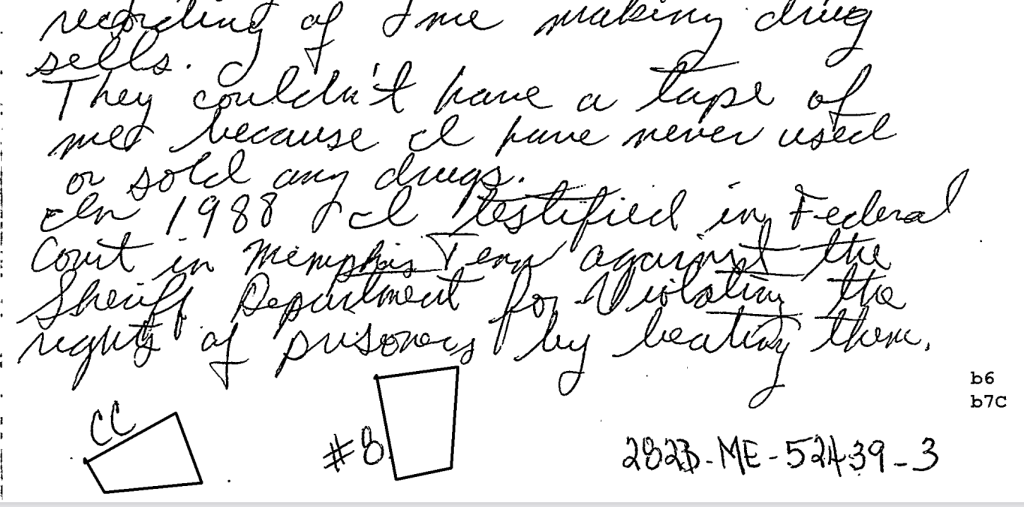 recording of me making drug
sells.
They couldn't have a tape of
me because I have never used
or sold any drugs.
In 1988 I testified in Federal
Court in Memphis Tenn against the
Sheriff Department for Violating the
rights of prisoners by beating them.
b6
b7C
CC
#8
282B-ME-52439-3